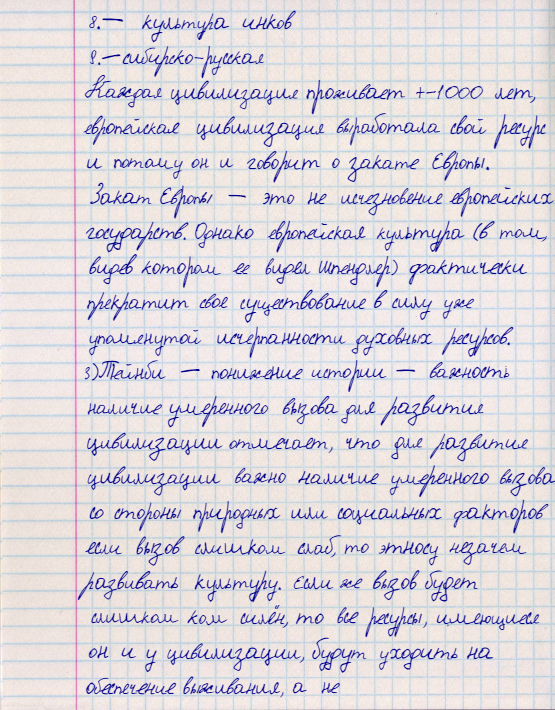 8.— культура инков
9.—сибирско-русская
Каждая цивилизация проживает +-1000 лет,
европейская цивилизация выработала свой ресурс
и потому он и говорит о закате Европы.
Закат Европы — это не исчезновение европейских
государств. Однако европейская культура (в том,
видев котором ее видел Шпенглер) фактически
прекратит свое существование в силу уже
упомянутой исчерпанности духовных ресурсов.
3)Тейнби — понижение истории — важность
наличие умеренного вызова для развития
цивилизации отмечает, что для развитие
цивилизации важно наличие умеренного вызова
со стороны природных или социальных факторов
если вызов слишком слаб, то этносу незачем
развивать культуру. Если же вызов будет
слишком ком силён, то все ресурсы, имеющиеся
он и у цивилизации, будут уходить на
обеспечение выживания, а не